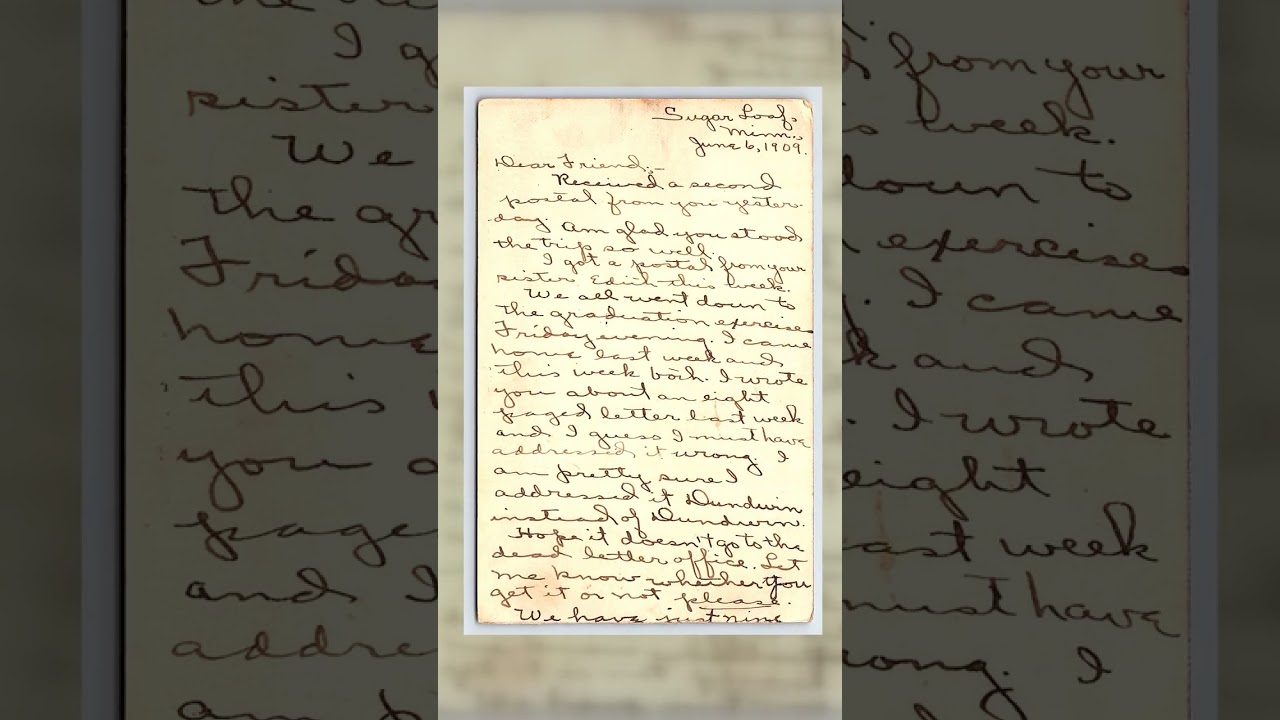 Sugar Loaf,
Minn.,
June 6, 1909.
Dear Friend:-
Received a second
postal from you yester-
day. Am glad you stood
the trip so well.
I got a postal from your
sister Edith this week.
We all went down to
the graduation exercises
Friday evening. I came
home last week and
this week both. I wrote
you about an eight
paged letter last week
and I guess I must have
addressed it wrong. I
am pretty sure I
addressed it Dundwin
instead of Dundurn.
Hope it doesn't go to the
dead letter office. Let
me know whether you
get it or not please.
We have just nine